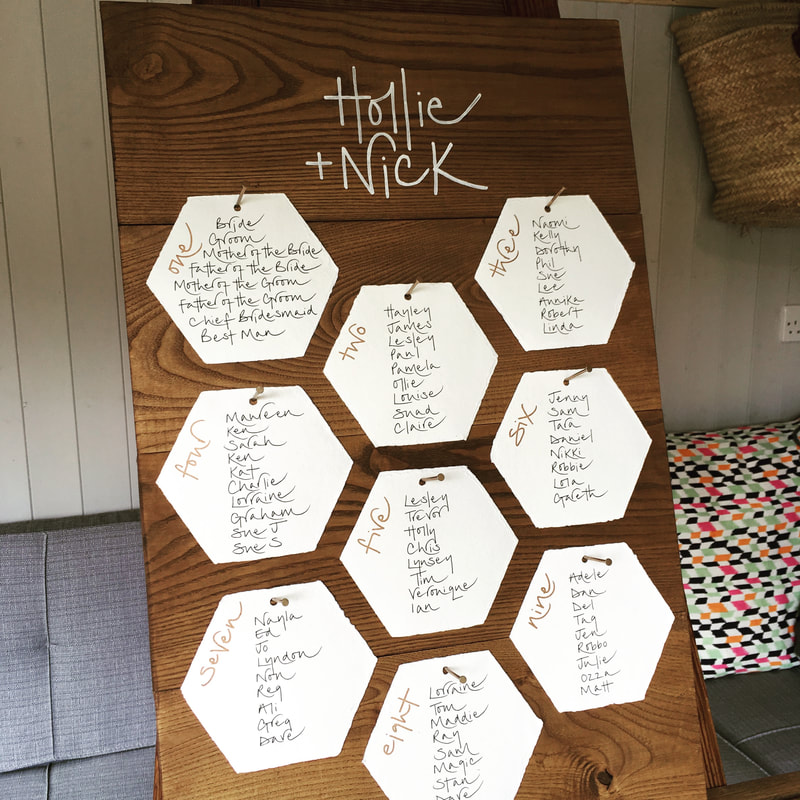 Hollie
+ Nick
one
Bride
Groom
Mother of the Bride
Father of the Bride
Mother of the Groom
Father of the Groom
Chief Bridesmaid
Best Man
two
Hayley
James
Lesley
Paul
Pamela
Ollie
Louise
Sinad
Claire
three
Naomi
Kelly
Dorothy
Phil
Sue
Lee
Annika
Robert
Linda
four
Maureen
Ken
Sarah
Ken
Kat
Charlie
Lorraine
Graham
Sue J
Sue S
five
Lesley
Trevor
Holly
Chris
Lynsey
Tim
Veronique
Ian
six
Jenny
Sam
Tara
Daniel
Nikki
Robbie
Lola
Gareth
seven
Nayla
Ed
Jo
Lyndon
Non
Reg
Ali
Greg
Dave
eight
Lorraine
Tom
Maddie
Ray
Sam
Magic
Stan
Dave
nine
Adele
Dan
Del
Tag
Jen
Robbo
Julie
Ozza
Matt